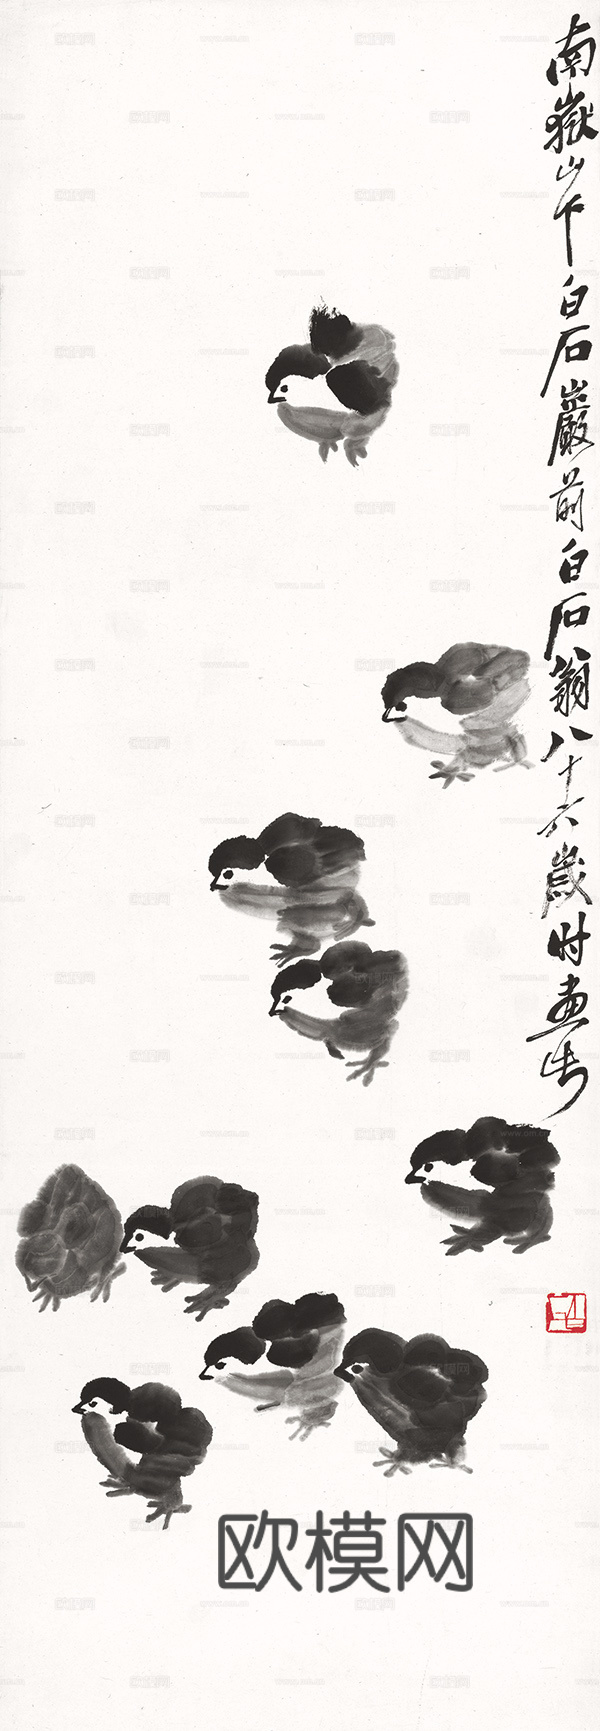 南嶽山下白石巖前白石翁八十六歲时画法
欧模网